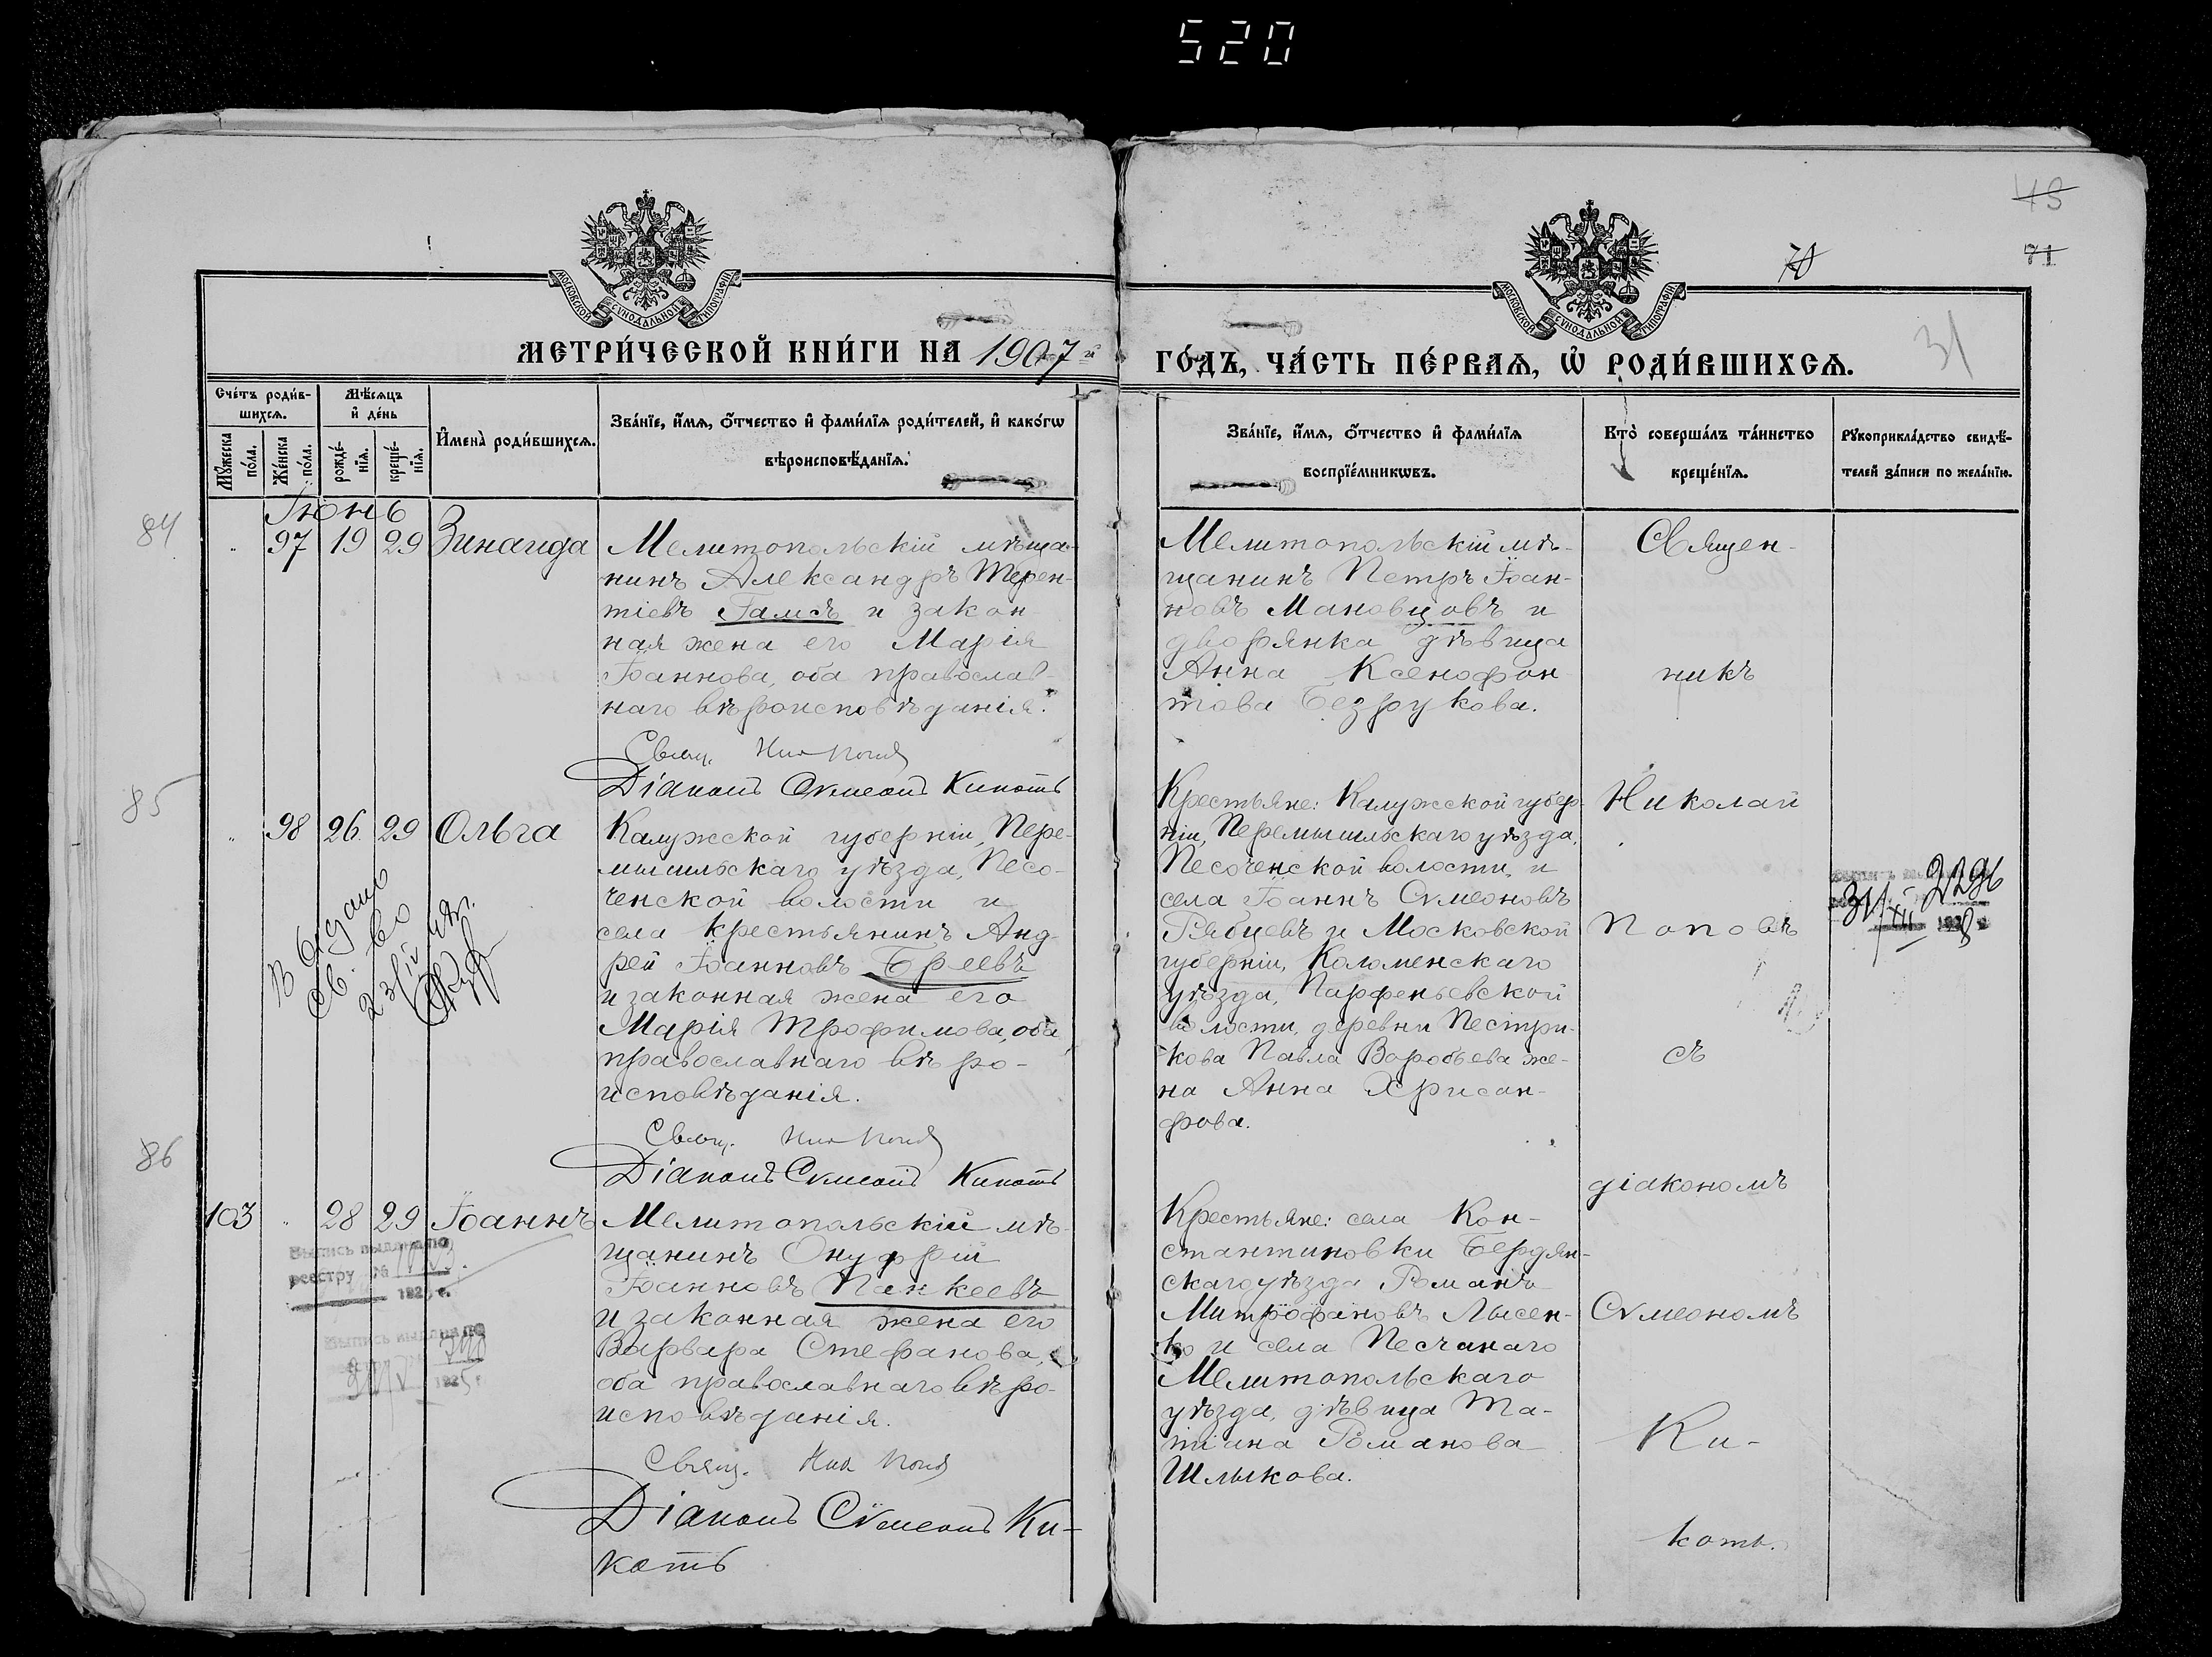 520
МОСКОВСКОЙ СѴНОДАЛЬНОЙ ТИПОГРАФІИ
МОСКОВСКОЙ СѴНОДАЛЬНОЙ ТИПОГРАФІИ
71
31
МЕТРИ́ЧЕСКОЙ КНИ́ГИ НА 1907 й
ГО́ДЪ, ЧА́СТЬ ПЕ́РВАѦ, Ѡ҆ РОДИ́ВШИХСѦ.
Сче́тъ роди́в-
шихсѧ.
Мѣ́сѧцъ
и҆ де́нь
Мꙋ́жеска
по́ла.
Же́нска
по́ла.
рожде́-
нїѧ.
креще́-
нїѧ.
И҆мена̀ роди́вшихсѧ.
Зва́нїе, и҆́мѧ, ѻ҆́тчество и҆ фами́лїѧ роди́телей, и҆ како́гѡ
вѣроисповѣ́данїѧ.
Зва́нїе, и҆́мѧ, ѻ҆́тчество и҆ фами́лїѧ
воспрїе́мникѡвъ.
Кто̀ соверша́лъ та́инство
креще́нїѧ.
Рꙋкоприкла́дство свидѣ́-
телей за́писи по жела́нїю.
84
Іюнь
97 19 29 Зинаида
Мелитопольскій мѣща-
нинъ Александръ Терен-
тіевъ Гамсъ и закон
ная жена его Марія
Іоаннова, оба православ-
наго вѣроисповѣданія.
Свящ. Ник Попов
Діаконъ Сѵмеонъ Кикоть
Мелитопольскій мѣ-
щанинъ Петръ Іоан-
новъ Мановцовъ и
дворянка дѣвица
Анна Ксенофон
това Безрукова.
85
98 26 29 Ольга
Калужской губерніи, Пере-
мышльскаго уѣзда, Песо-
ченской волости и
села крестьянинъ Анд-
рей Іоанновъ Бреевъ
и законная жена его
Марія Трофимова, оба
православнаго вѣро-
исповѣданія.
Свящ. Ник Попов
Діаконъ Сѵмеонъ Кикоть
Крестьяне: Калужской губер-
ніи, Перемышльскаго уѣзда,
Песоченской волости, и
села Іоаннъ Сѵмеоновъ
Рябцевъ и Московской
губерніи, Коломенскаго
уѣзда, Парфеньевской
волости, деревни Пестри-
кова Павла Воробьева же-
на Анна Хрисан-
фова.
Выдано
св. во
23/IV
31/XII 2296
1928
86
103 28 29 Іоаннъ
Выпись выдана по
реестру №
192 г.
Выпись выдана по
192 г.
Мелитопольскій мѣ-
щанинъ Онуфрій
Іоанновъ Панкеевъ
и законная жена его
Варвара Стефанова,
оба православнаго вѣро-
исповѣданія.
Свящ. Ник Попов
Діаконъ Сѵмеонъ Ки-
коть
Крестьяне: села Кон-
стантиновки Бердян-
скаго уѣзда Романъ
Митрофановъ Лысен-
ко и села Песчанаго
Мелитопольскаго
уѣзда, дѣвица Та-
тіана Романова
Шлыкова.
Священ-
никъ
Николай
Поповъ
съ
діакономъ
Сѵмеономъ
Ки-
коть.